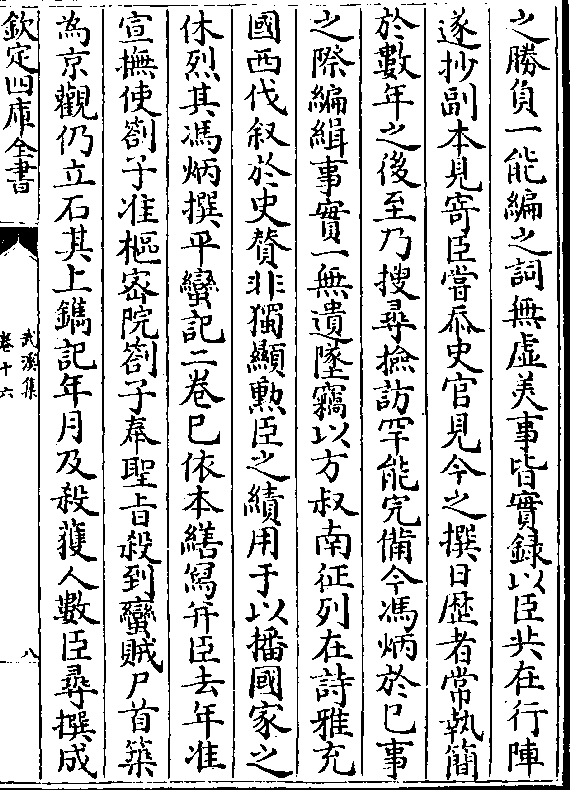 之勝負一能編之詞無虚美事皆實録以臣共在行陣
遂抄副本見寄臣嘗忝史官見今之撰日歴者常執簡
於數年之後至乃搜尋撿訪罕能完備今馮炳於已事
之際編緝事實一無遺墜竊以方叔南征列在詩雅充
國西伐叙於史賛非獨顯勲臣之績用于以播國家之
休烈其馮炳撰平蠻記二卷已依本繕寫并臣去年准
宣撫使劄子准樞宻院劄子奉聖旨殺到蠻賊尸首築
為京觀仍立石其上鐫記年月及殺獲人數臣尋撰成
欽定四庫全書
武溪集
卷十六
八